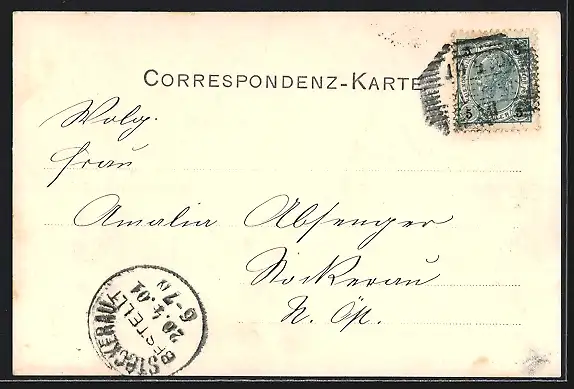 CORRESPONDENZ-KARTE
Wolg.
Frau
Amalia Absenger
Stockerau
N. Öst.
STOCKERAU
BESTELLT
20.4.01
6-7N
5 5